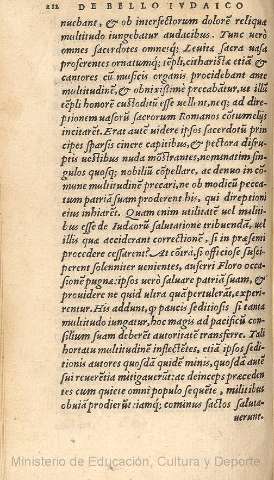 212 DE BELLO IVDAICO
nuebant, & ob interfectorum dolorẽ reliqua
multitudo iungebatur audacibus. Tunc uerò
omnes sacerdotes omnesq́; Leuitæ sacra uasa
proferentes ornatumq́; tẽpli, citharistæ etiã &
cantores cũ musicis organis procidebant ante
multitudinẽ, & obnixissimè precabãtur, ut illũ
tẽpli honorẽ custoditũ esse uellẽt, neq; ad dire-
ptionem uasorũ sacrorum Romanos cõtumelijs
incitarẽt. Erat autẽ uidere ipsos sacerdotũ prin
cipes sparsis cinere capitibus, & pectora disru-
ptis uestibus nuda mõstrantes, nominatim sin-
gulos quosq; nobiliũ cõpellare, ac denuo in cõ
mune multitudinẽ precari, ne ob modicũ pecca-
tum patriã suam proderent his, qui direptioni
eius inhiarẽt. Quam enim utilitatẽ uel militi-
bus esse de Iudæorũ salutatione tribuendã, uel
illis quæ acciderant correctionẽ, si in præsenti
procedere cessarent? At cõtrà si officiose susci-
perent solenniter uenientes, auferri Floro occa-
sionẽ pugnæ: ipsos uerò saluare patriã suam, &
prouidere ne quid ultra quã pertulerãt, experi-
rentur. His addunt, q paucis seditiosis si tanta
multitudo iungatur, hoc magis ad pacificũ con-
silium suam deberẽt autoritatẽ transferre. Tali
hortatu multitudinẽ inflectẽtes, etiã ipsos sedi-
tionis autores quosdã quidẽ minis, quosdã autẽ
sui reuerẽtia mitigauerũt: ac deinceps præceden
tes cum quiete omni populo sequẽte, militibus
obuiã prodierũt: iamq́; cominus factos saluta-
uerunt.
Ministerio de Educación, Cultura y Deporte